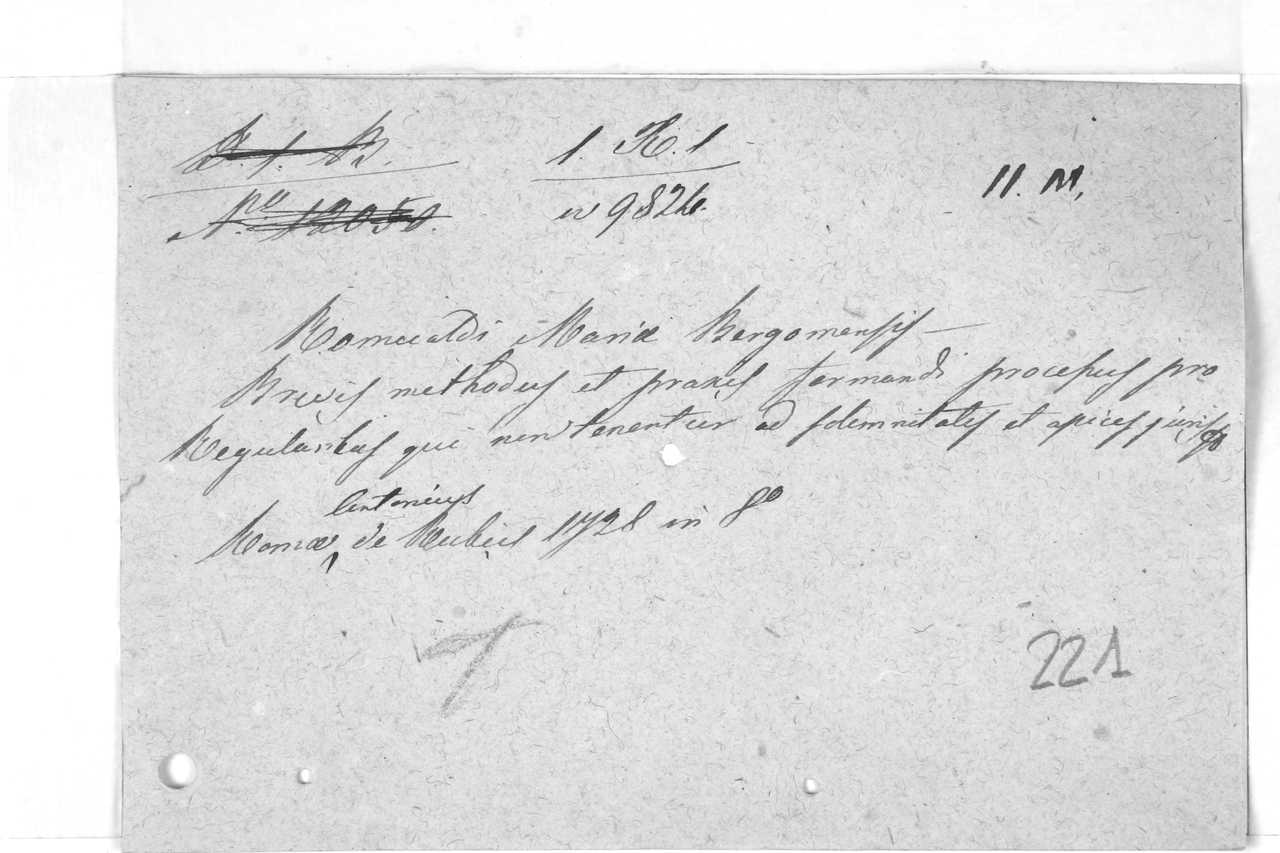 1. K. 1
11. M.
No. 12050.
9824.
Romualdi Mariæ Bergomensis —
Brevis methodus et praxis formandi processus pro
Regularibus qui non tenentur ad solemnitates et apices juris
Antonius
Romæ de Rubeis 1728 in 8o
221